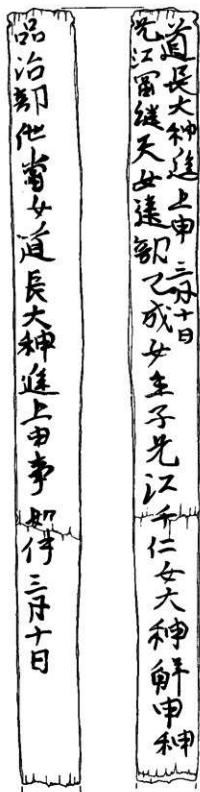 道長大神進上申 三月十日
兄江冨継天女遠部乙成女主子兄江千仁女大神解申神
品治部他當女道長大神進上申事如件三月十日